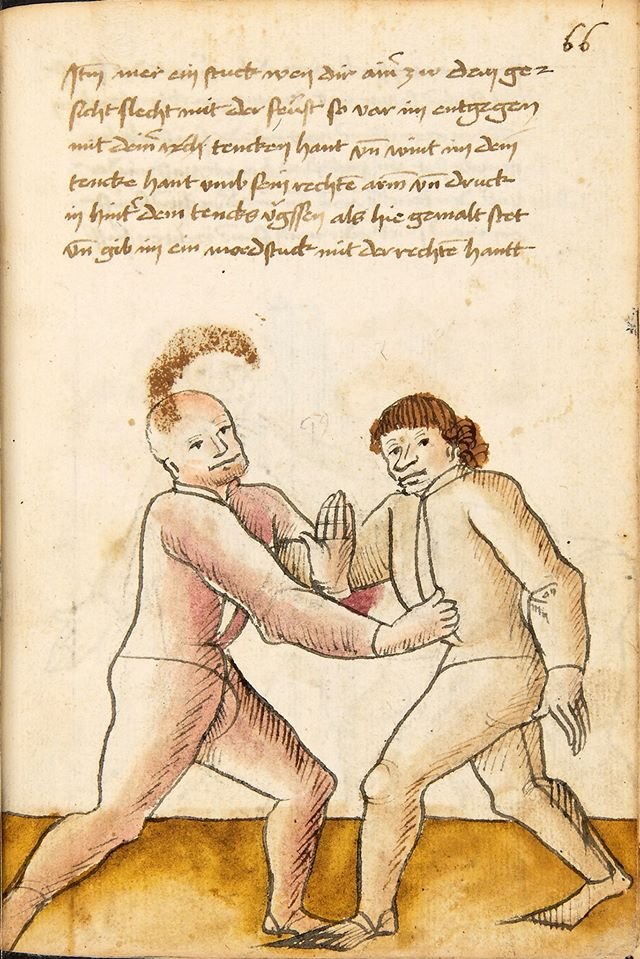 66
Itm mer ein stuck wen dir ain̄ zw dem ge-
sicht slecht mit der feust so var im entgegen
mit deīr tencken hant vn̄ wint im dein
tencke hant vmb sein rechtē arm vn̄ druck
in hint̄ dem tencks als hie gemalt stet
vn̄ gib im ein mordstuck mit der rechtē hantt